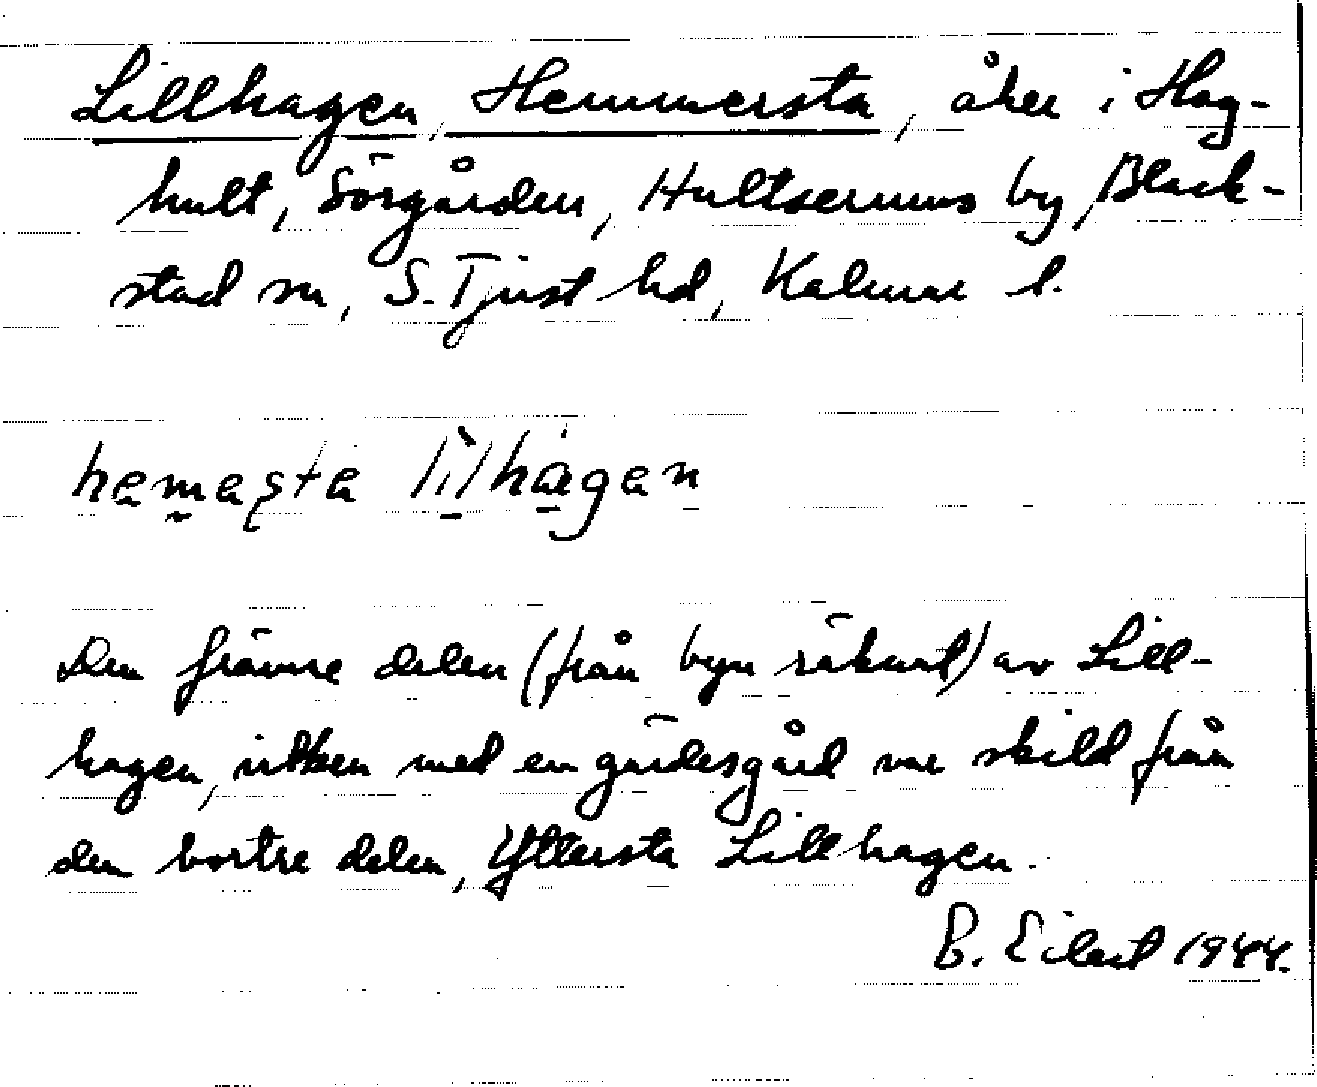 Lillhagen, Hemmersta, åker i Hag-
hult, Sörgården, Hultserums by, Black-
stad sn, S. Tjust hd, Kalmar l.
hemesta lìlhagen
Den främre delen (från byn räknat) av Lill-
hagen, vilken med en gärdesgård var skild från
den bortre delen, Yttersta Lillhagen.
B. Eilert 1944.